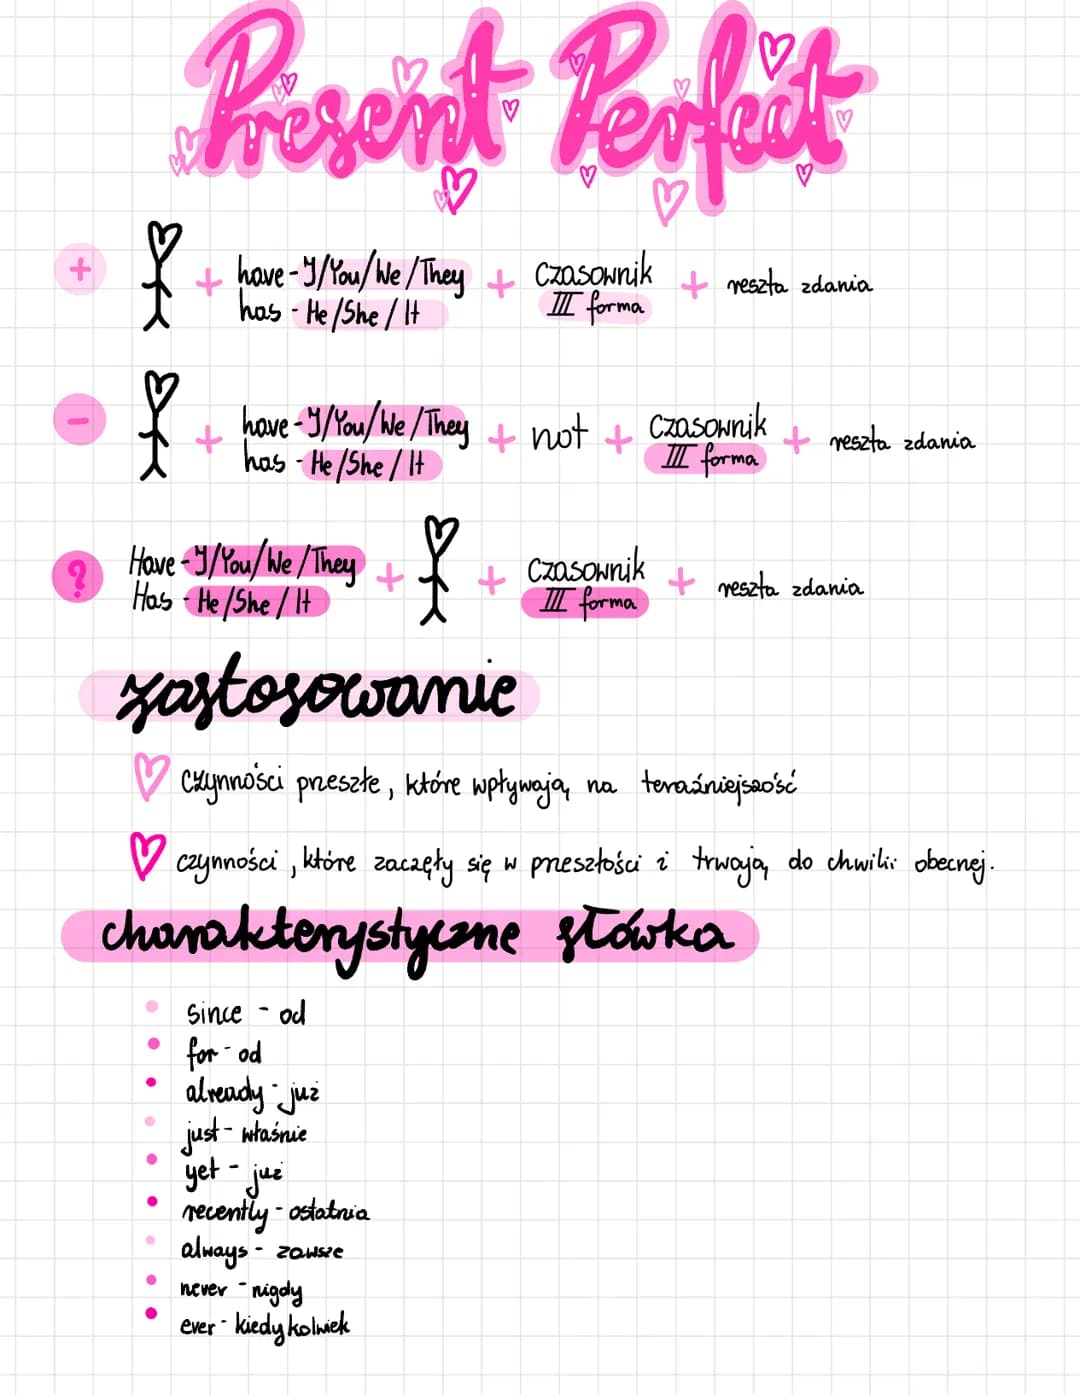 Present Perfect
+ + have - I/You/We/They + czasownik + reszta zdania
has - He/She/It III forma
- + have - I/You/We/They + not + czasownik + reszta zdania
has - He/She/It III forma
? Have - I/You/We/They + + czasownik + reszta zdania
Has - He/She/It III forma
zastosowanie
czynności przeszłe, które wpływają na teraźniejszość
czynności, które zaczęły się w przeszłości i trwają do chwili obecnej.
charakterystyczne słówka
since - od
for - od
already - już
just - właśnie
yet - już
recently - ostatnia
always - zawsze
never - nigdy
ever - kiedykolwiek